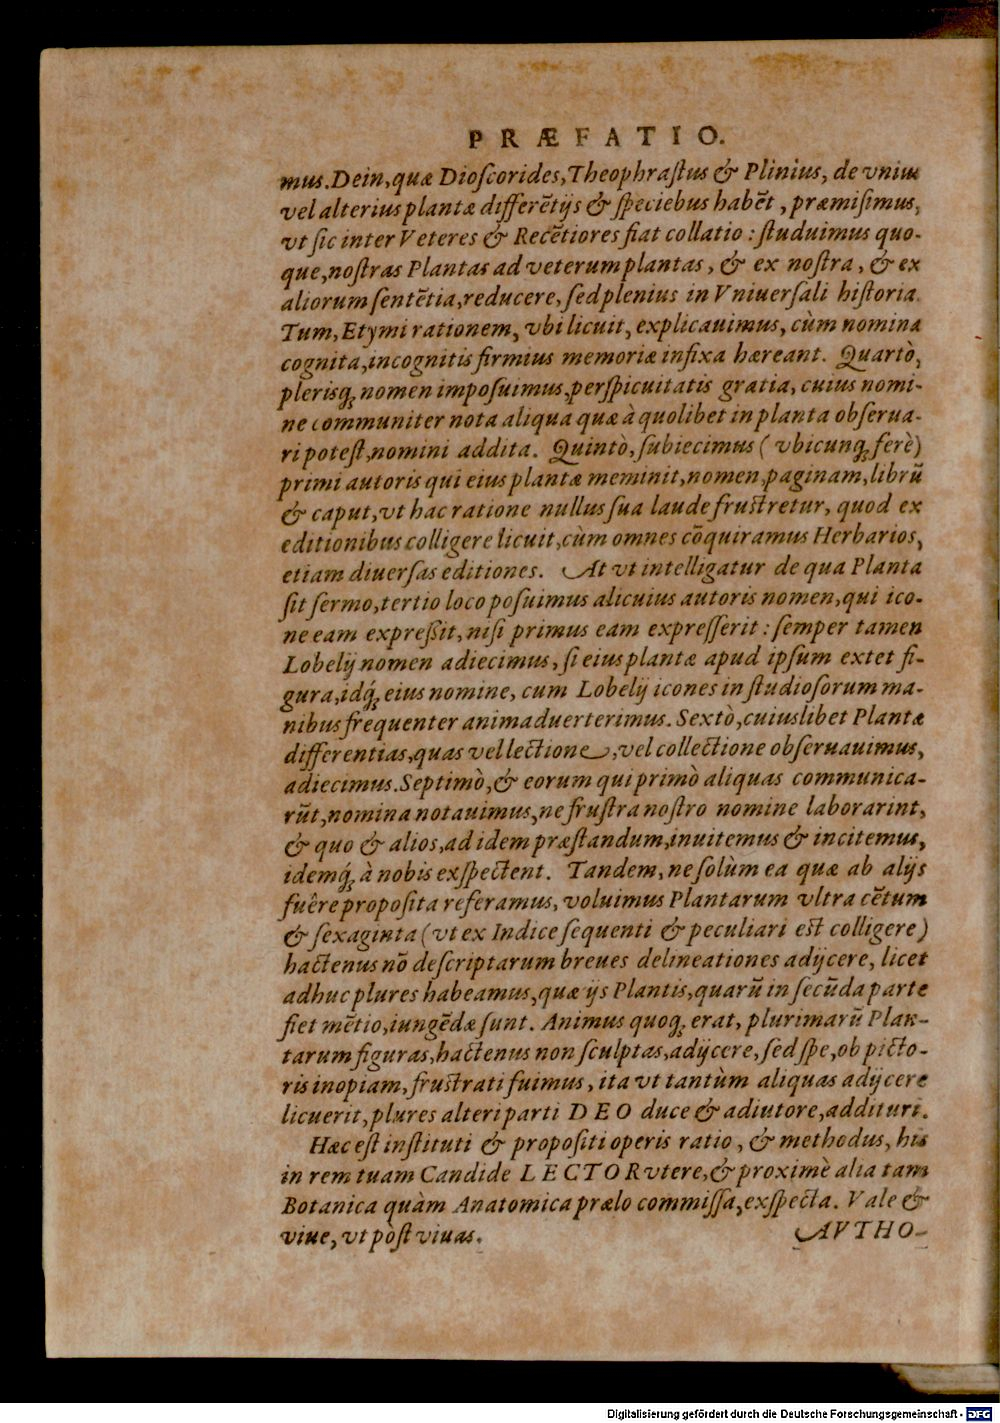 PRÆFATIO.
mus. Dein, quæ Dioſcorides, Theophraſtus & Plinius, de vnius
vel alterius plantæ differẽtijs & ſpeciebus habẽt, præmiſimus,
vt ſic inter Veteres & Recẽtiores fiat collatio: ſtuduimus quo-
que, noſtras Plantas ad veterum plantas, & ex noſtra, & ex
aliorum ſentẽtia, reducere, ſed plenius in Vniuerſali hiſtoria.
Tum, Etymi rationem, vbi licuit, explicauimus, cùm nomina
cognita, incognitis firmius memoriæ infixa hæreant. Quartò,
plerisq́; nomen impoſuimus, perſpicuitatis gratia, cuius nomi-
ne communiter nota aliqua quæ à quolibet in planta obſerua-
ri poteſt, nomini addita. Quintò, ſubiecimus (vbicunq; ferè)
primi autoris qui eius plantæ meminit, nomen, paginam, librũ
& caput, vt hac ratione nullus ſua laude fruſtretur, quod ex
editionibus colligere licuit, cùm omnes cõquiramus Herbarios,
etiam diuerſas editiones. At vt intelligatur de qua Planta
ſit ſermo, tertio loco poſuimus alicuius autoris nomen, qui ico-
ne eam expreſſit, niſi primus eam expreſſerit: ſemper tamen
Lobelij nomen adiecimus, ſi eius plantæ apud ipſum extet fi-
gura, idq́; eius nomine, cum Lobelij icones in ſtudioſorum ma-
nibus frequenter animaduerterimus. Sextò, cuiuslibet Plantæ
differentias, quas vel lectione, vel collectione obſeruauimus,
adiecimus. Septimò, & eorum qui primò aliquas communica-
rũt, nomina notauimus, ne fruſtra noſtro nomine laborarint,
& quo & alios, ad idem præſtandum, inuitemus & incitemus,
idemq́; à nobis exſpectent. Tandem, ne ſolùm ea quæ ab alijs
fuêre propoſita referamus, voluimus Plantarum vltra cẽtum
& ſexaginta (vt ex Indice ſequenti & peculiari eſt colligere)
hactenus nõ deſcriptarum breues delineationes adijcere, licet
adhuc plures habeamus, quæ ijs Plantis, quarũ in ſecũda parte
fiet mẽtio, iungẽdæ ſunt. Animus quoq; erat, plurimarũ Plan-
tarum figuras, hactenus non ſculptas, adijcere, ſed ſpe, ob picto-
ris inopiam, fruſtrati fuimus, ita vt tantùm aliquas adijcere
licuerit, plures alteri parti DEO duce & adiutore, addituri.
Hæc eſt inſtituti & propoſiti operis ratio, & methodus, his
in rem tuam Candide LECTOR vtere, & proximè alia tam
Botanica quàm Anatomica prælo commiſſa, exſpecta. Vale &
viue, vt poſt viuas.
AVTHO-
Digitalisierung gefördert durch die Deutsche Forschungsgemeinschaft - DFG